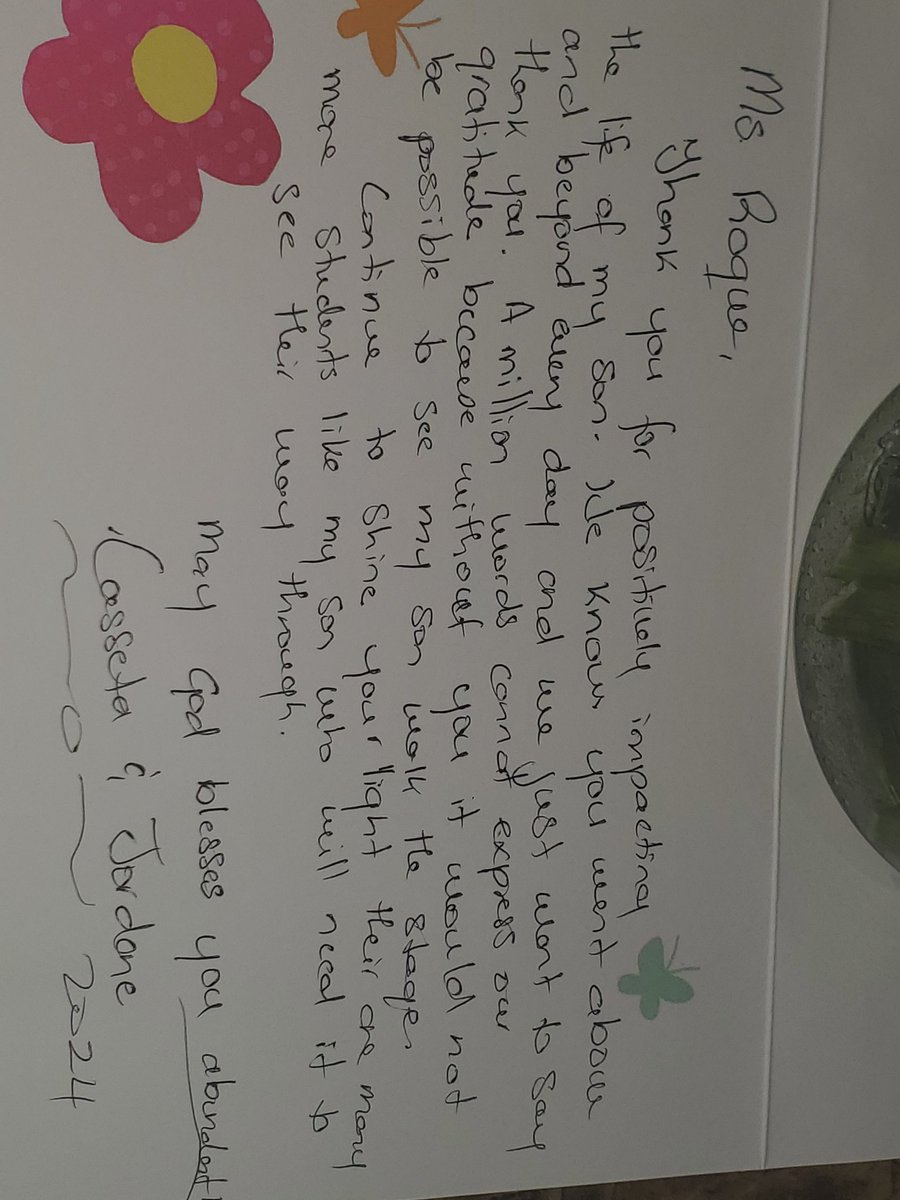 Ms. Roque,
Thank you for positively impacting
the life of my son. We know you went above
and beyond every day and we just want to say
thank you. A million words cannot express our
gratitude because without you it would not
be possible to see my son walk the stage.
Continue to shine your light their are many
more students like my son who will need it to
see their way through.
May God blesses you abundantl
Casseta & Jordane
2024